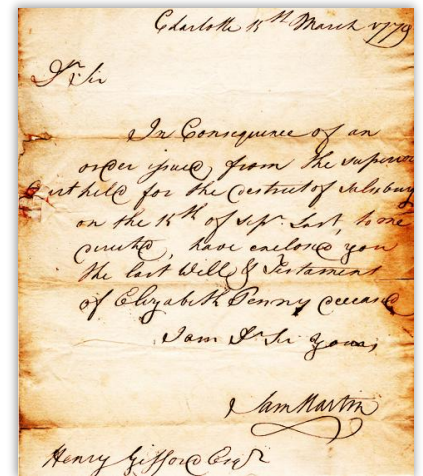 Charlotte 15th March 1779
Dr. Sir
In Consequence of an
order issued from the superior
Court held for the destrict of Salsbury
on the 15th of Sepr. Last, to me
directed, have enclosed you
the last Will & Testament
of Elizabeth Penny deceased
I am Dr. Sir Yours,
Sam Martin
Henry Gifford Esqr